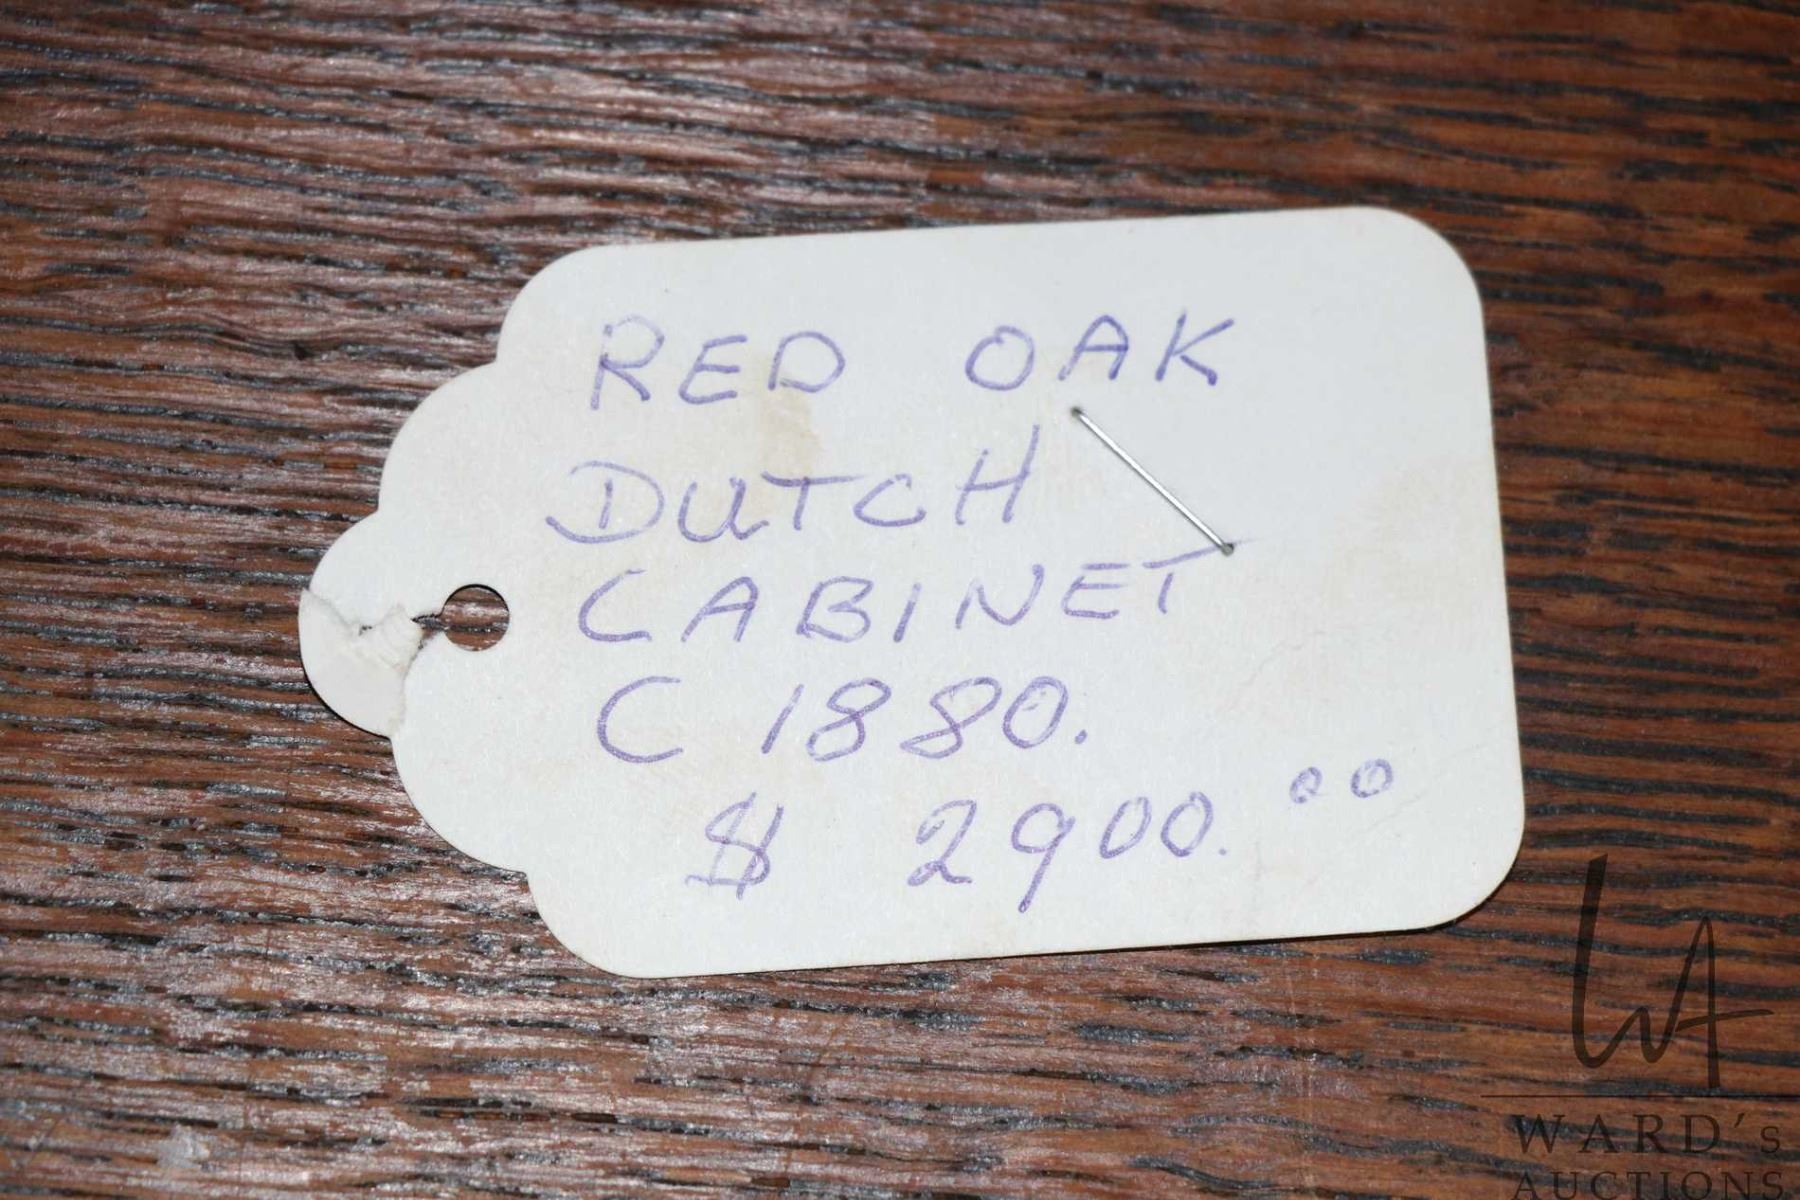 RED OAK
DUTCH
CABINET
C 1880.
$ 2900.00
WA
WARD's
AUCTIONS